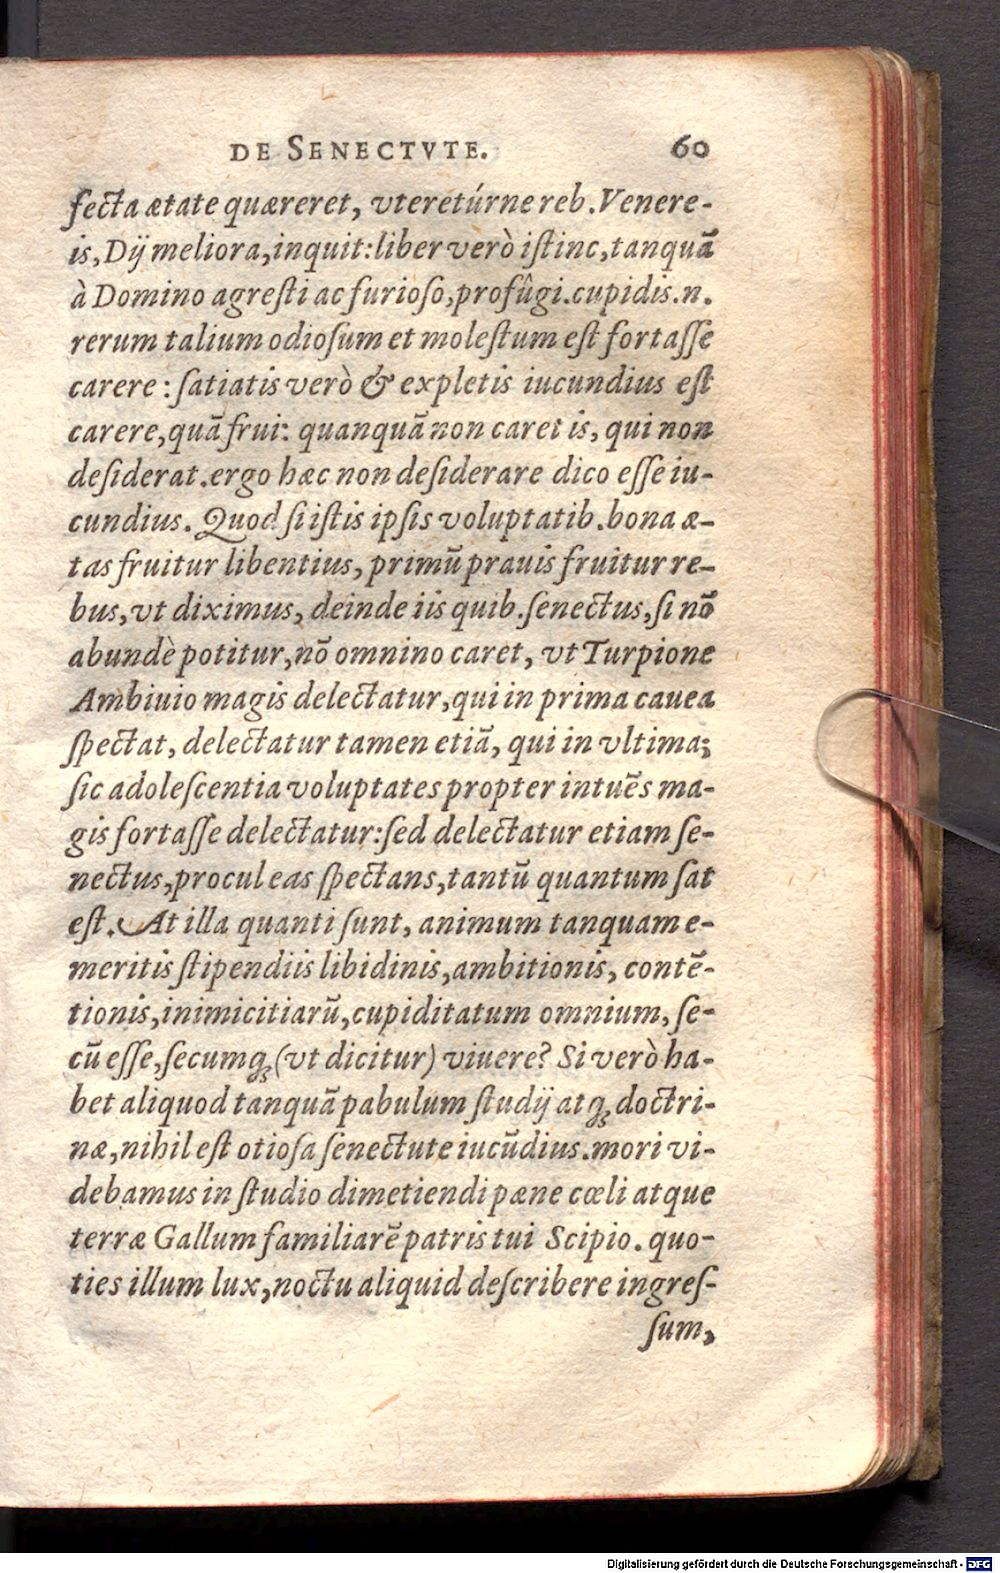 DE SENECTVTE. 60
fecta ætate quæreret, vteretúrne reb. Venere-
is, Dij meliora, inquit: liber verò istinc, tanquā
à Domino agresti ac furioso, profûgi. cupidis .n.
rerum talium odiosum et molestum est fortasse
carere: satiatis verò & expletis iucundius est
carere, quā frui: quanquā non caret is, qui non
desiderat. ergo hæc non desiderare dico esse iu-
cundius. Quod si istis ipsis voluptatib. bona æ-
tas fruitur libentius, primū prauis fruitur re-
bus, vt diximus, deinde iis quib. senectus, si nō
abundè potitur, nō omnino caret, vt Turpione
Ambiuio magis delectatur, qui in prima cauea
spectat, delectatur tamen etiā, qui in vltima;
sic adolescentia voluptates propter intuēs ma-
gis fortasse delectatur: sed delectatur etiam se-
nectus, procul eas spectans, tantū quantum sat
est. At illa quanti sunt, animum tanquam e-
meritis stipendiis libidinis, ambitionis, contē-
tionis, inimicitiarū, cupiditatum omnium, se-
cū esse, secumq; (vt dicitur) viuere? Si verò ha-
bet aliquod tanquā pabulum studij atq; doctri-
næ, nihil est otiosa senectute iucūdius. mori vi-
debamus in studio dimetiendi pæne cœli atque
terræ Gallum familiarē patris tui Scipio. quo-
ties illum lux, noctu aliquid describere ingres-
sum,
Digitalisierung gefördert durch die Deutsche Forschungsgemeinschaft - DFG